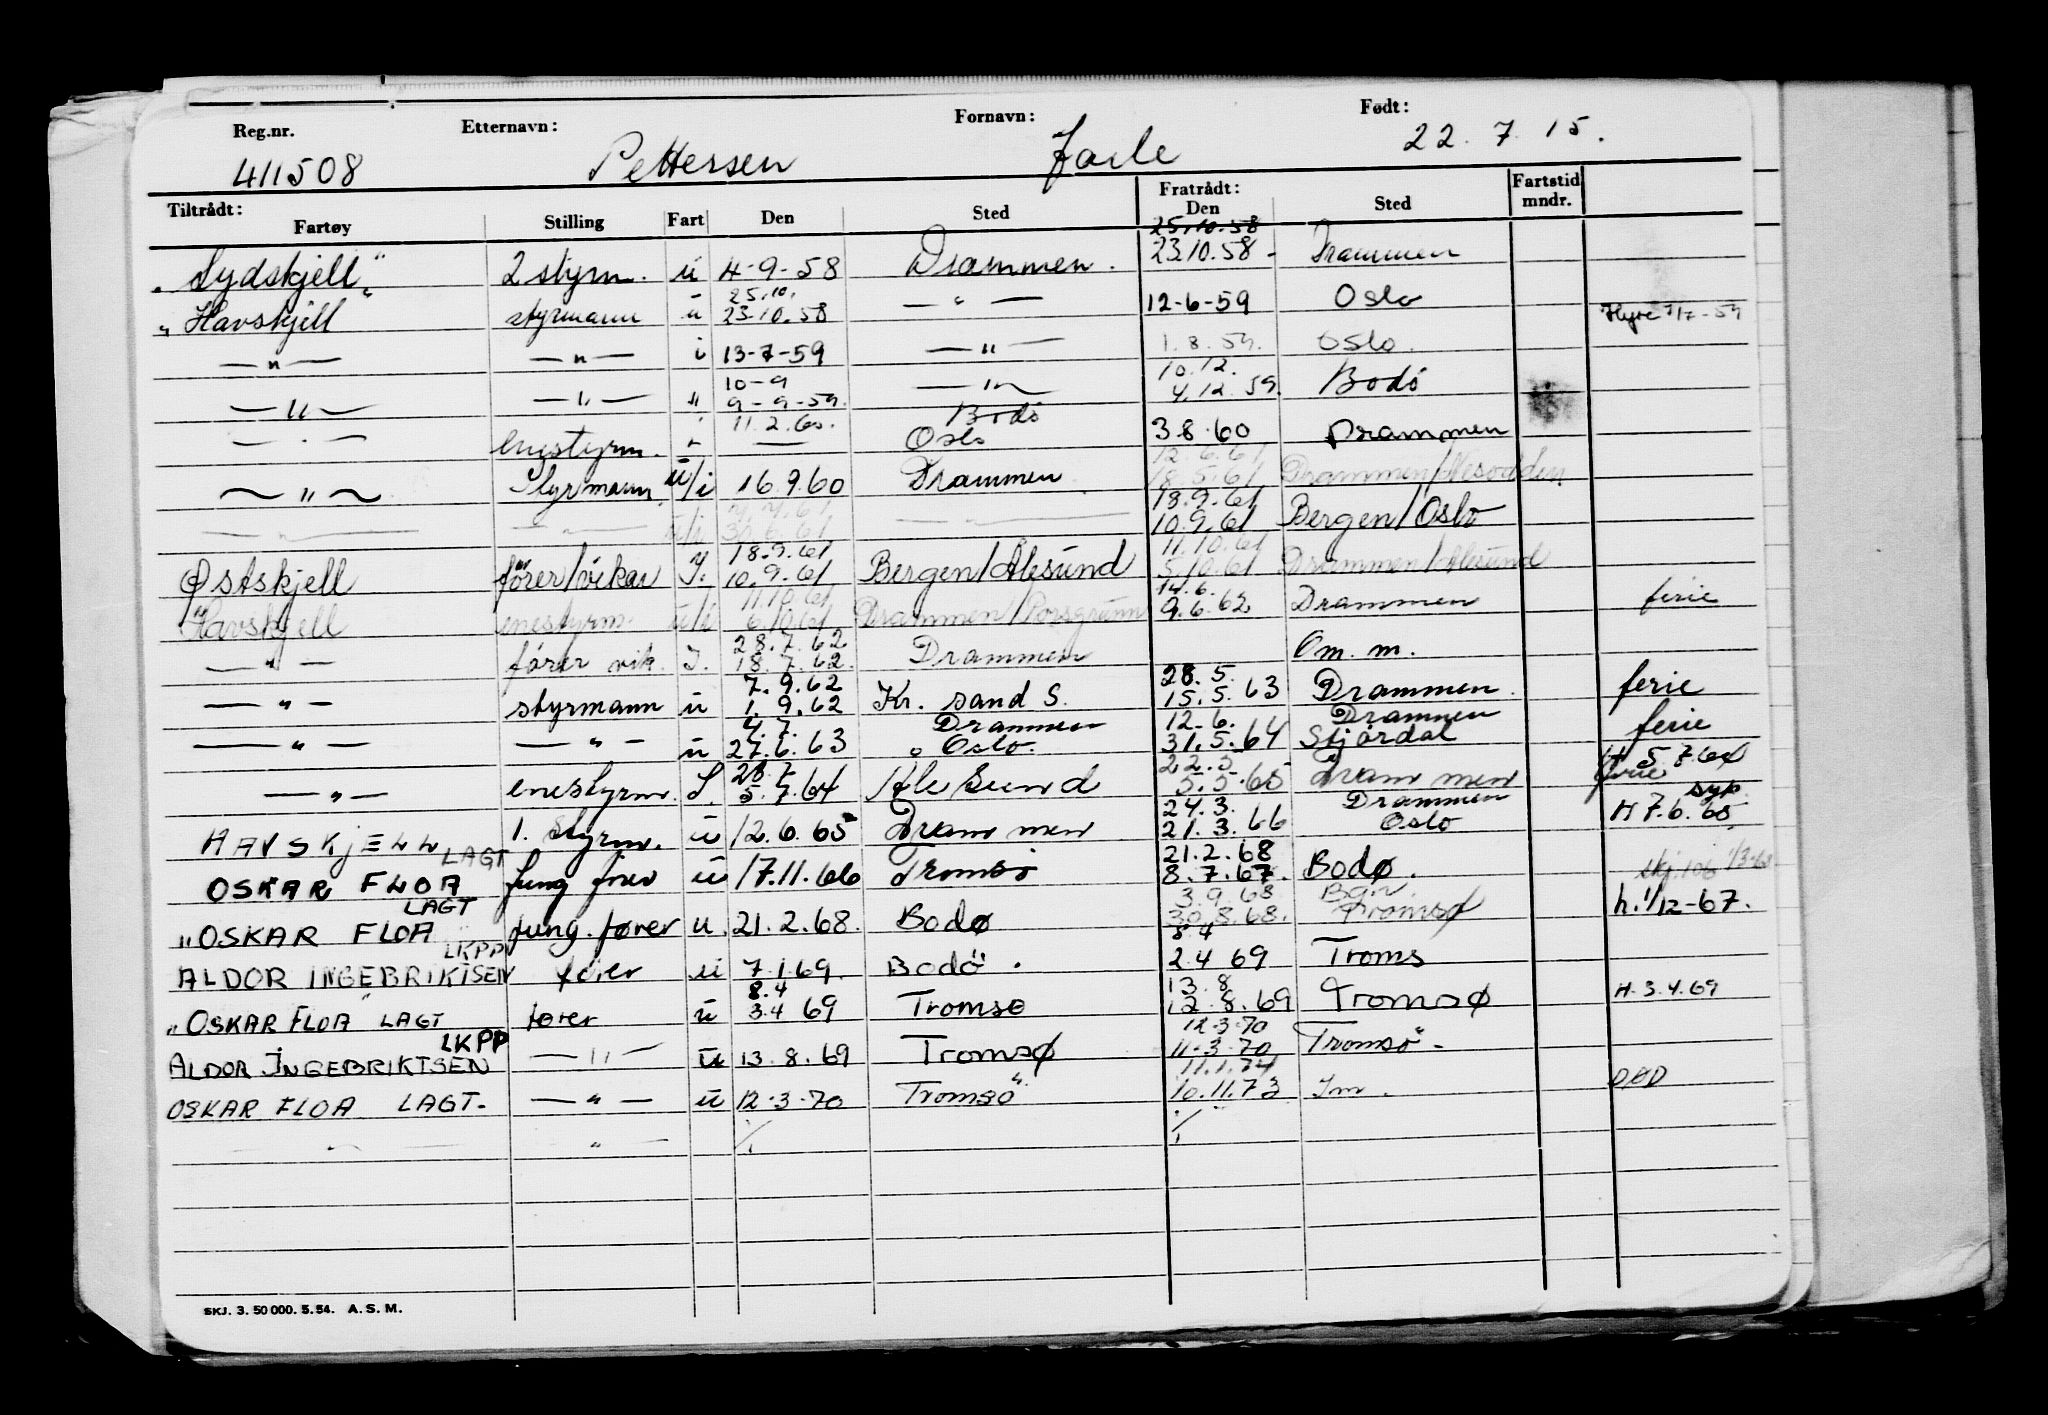 Reg.nr. Etternavn: Fornavn: Født:
411508 Pettersen Jarle 22. 7. 15.
Tiltrådt: Fratrådt: Fartstid
Fartøy Stilling Fart Den Sted Den Sted mndr.
25.10.58
"Sydskjell" 2 styrm. u 4-9-58 Drammen. 23.10.58 - Drammen
25.10.
"Havskjell" styrmann u 23.10.58 — " — 12-6-59 Oslo Hyre 7/7-59
— " — — " — i 13-7-59 — " — 1.8.59. Oslo.
10-9 10.12.
— " — — " — " 9-9-59. — " — 4.12.59. Bodø
11.2.60. Bodö
— " — enestyrm. — Oslo 3.8.60 Drammen
12.6.61
— " — Styrmann u/i 16.9.60 Drammen 18.5.61 Drammen/Nesodden
18.9.61
— " — — " — u/i — " — 10.9.61 Bergen/Oslo
18.9.61 11.10.61
Østskjell fører/vikar I. 10.9.61 Bergen/Ålesund 5.10.61 Drammen/Ålesund
11.10.61 14.6.
Havskjell enestyrm. u/i 6.10.61 Drammen/Porsgrunn 9.6.62 Drammen ferie
28.7.62
— " — fører vik. I. 18.7.62. Drammen Om. m.
7.9.62 28.5.
— " — styrmann u 1.9.62 Kr. sand S. 15.5.63 Drammen. ferie
4.7. Drammen 12.6. Drammen
— " — — " — u 27.6.63 Oslo. 31.5.64 Stjørdal ferie
22.5 H 5.7.64
— " — enestyrm. 5.7.64 Ålesund 5.5.65 Drammen ferie
24.3. Drammen syk
HAVSKJELL 1. styrm. u 12.6.65 Drammen 21.3.66 Oslo H 7.6.65
LAGT 21.2.68
OSKAR FLOA fung fører u 17.11.66 Tromsö 8.7.67. Bodø.
LAGT 3.9.68
"OSKAR FLOA fung. fører u. 21.2.68. Bodø 30.8.68. Tromsø h. 1/12-67.
LKPP 8.4
ALDOR INGEBRIKTSEN fører u 7.1.69. Bodö. 2.4 69 Troms
8.4 13.8
"OSKAR FLOA" LAGT fører u 3.4 69 Tromsø 12.8.69 Tromsø H.3.4.69
LKPP 12-3-70
ALDOR INGEBRIKTSEN — " — u 13.8.69 Tromsø 11-3-70 Tromsö -
11.1.74
OSKAR FLOA LAGT. — " — u 12-3-70 Tromsö 10.11.73 Im. DØD
— " — — " — ./. ./.
SKJ. 3. 50 000. 5. 54. A. S. M.